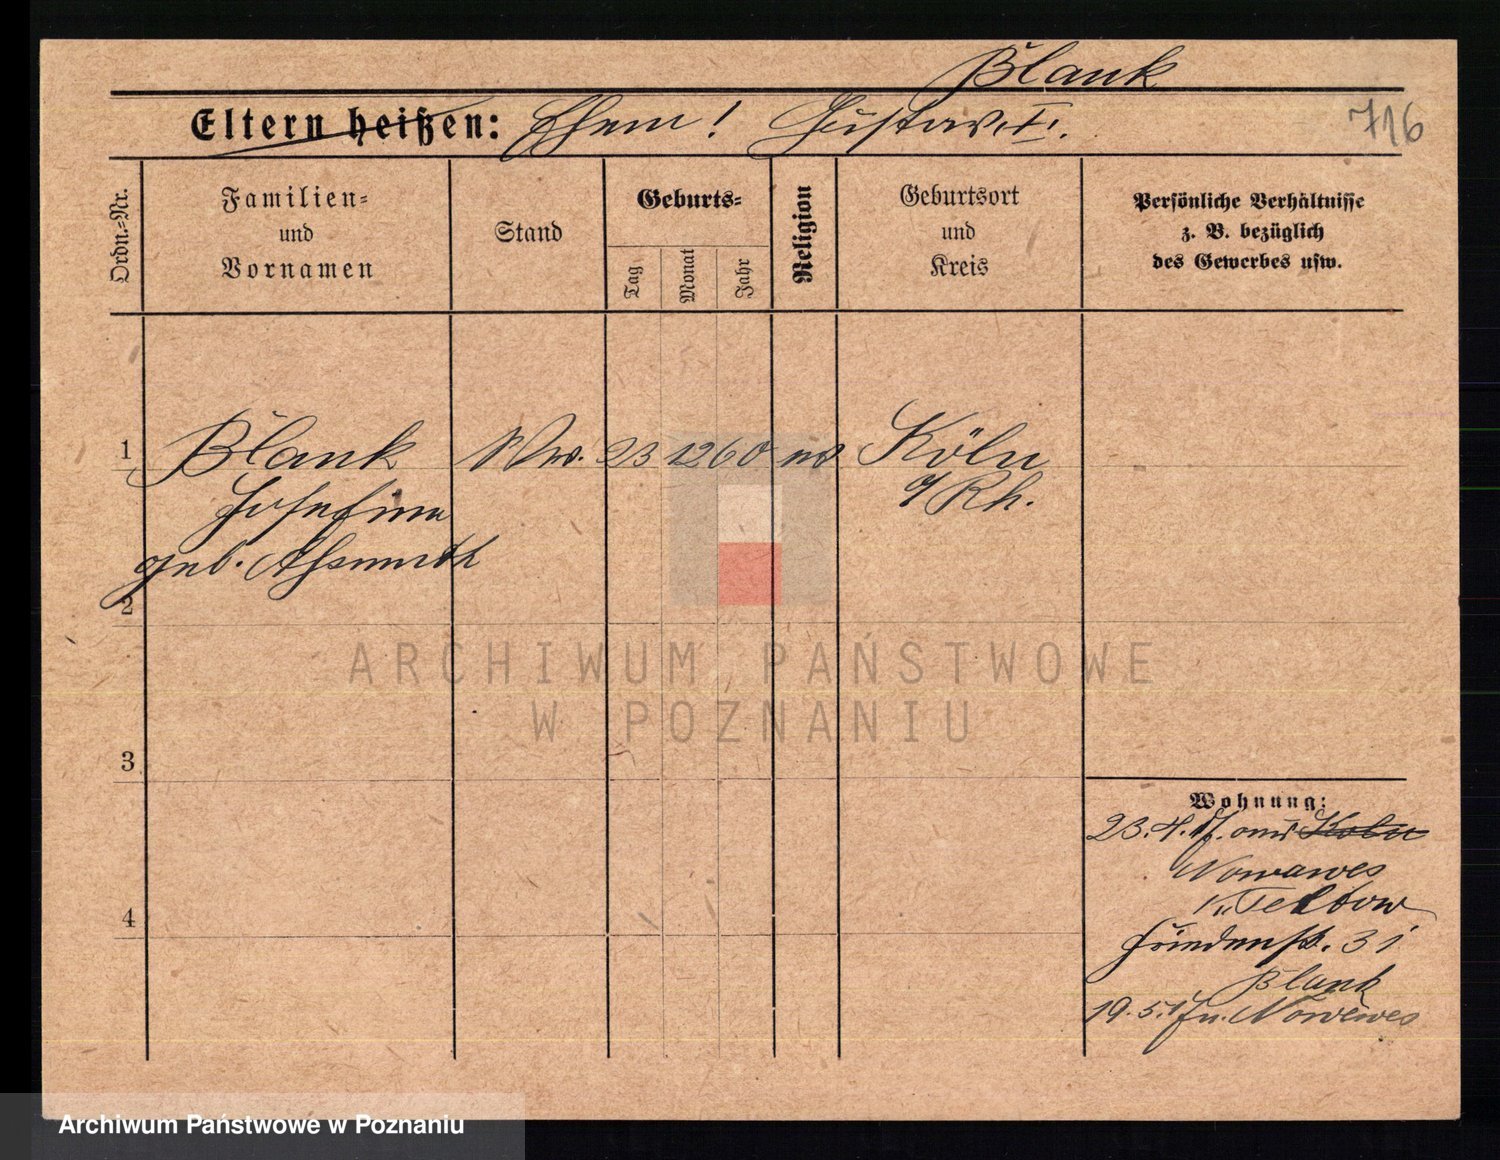 Blank
Eltern heißen: Ehem! Gustav, I.
716
Ordn.-Nr.
Familien-
und
Vornamen
Stand
Geburts-
Tag
Monat
Jahr
Religion
Geburtsort
und
Kreis
Persönliche Verhältnisse
z. B. bezüglich
des Gewerbes usw.
1
Blank
Josefine
geb. Assmuth
Ww.
23 12 60
Köln
a/Rh.
2
3
4
Wohnung:
23.4.17. aus Köln
Nowawes
Teltow
Friedenstr. 31
Blank
19.5.17 n. Nowawes
ARCHIWUM PAŃSTWOWE
W POZNANIU
Archiwum Państwowe w Poznaniu